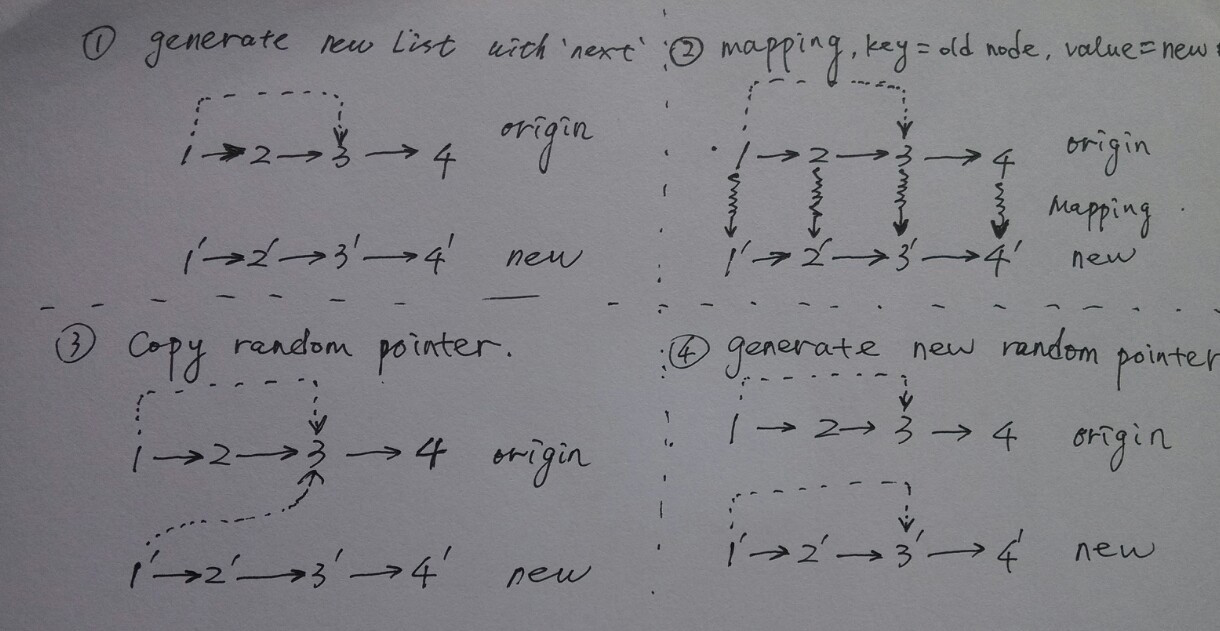 ① generate new List with 'next'
1 → 2 → 3 → 4 origin
1' → 2' → 3' → 4' new
② mapping, key = old node, value = new
1 → 2 → 3 → 4 origin
Mapping
1' → 2' → 3' → 4' new
③ Copy random pointer.
1 → 2 → 3 → 4 origin
1' → 2' → 3' → 4' new
④ generate new random pointer
1 → 2 → 3 → 4 origin
1' → 2' → 3' → 4' new